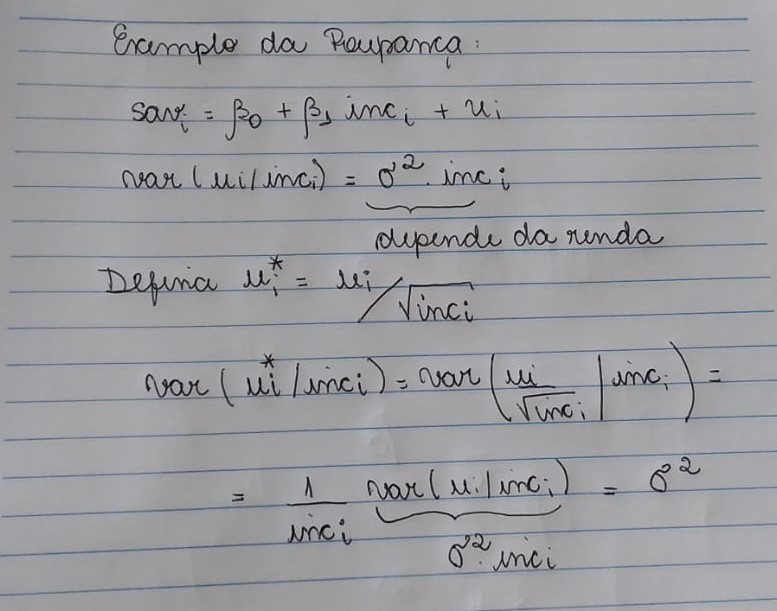 Exemplo da Poupança:
sav_i = β_0 + β_1 inc_i + u_i
var(u_i/inc_i) = σ². inc_i
depende da renda
Defina u_i* = u_i/√inc_i
var(u_i*/inc_i) = var(u_i/√inc_i | inc_i) =
= 1/inc_i var(u_i/inc_i) = σ²
σ². inc_i